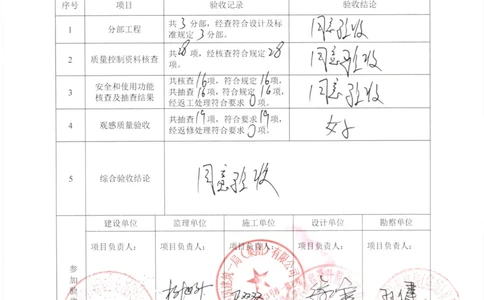 序号 项目 验收记录 验收结论
1 分部工程 共3分部，经查符合设计及标准规定3分部。 同意验收
2 质量控制资料核查 共28项，经核查符合规定28项。 同意验收
3 安全和使用功能核查及抽查结果 共核查16项，符合规定16项，
共抽查16项，符合规定16项，
经返工处理符合要求0项。 同意验收
4 观感质量验收 共抽查19项，符合要求19项，
经返修处理符合要求0项。 好
5 综合验收结论 同意验收
建设单位 监理单位 施工单位 设计单位 勘察单位
项目负责人： 项目负责人： 项目负责人： 项目负责人： 项目负责人：
参
加